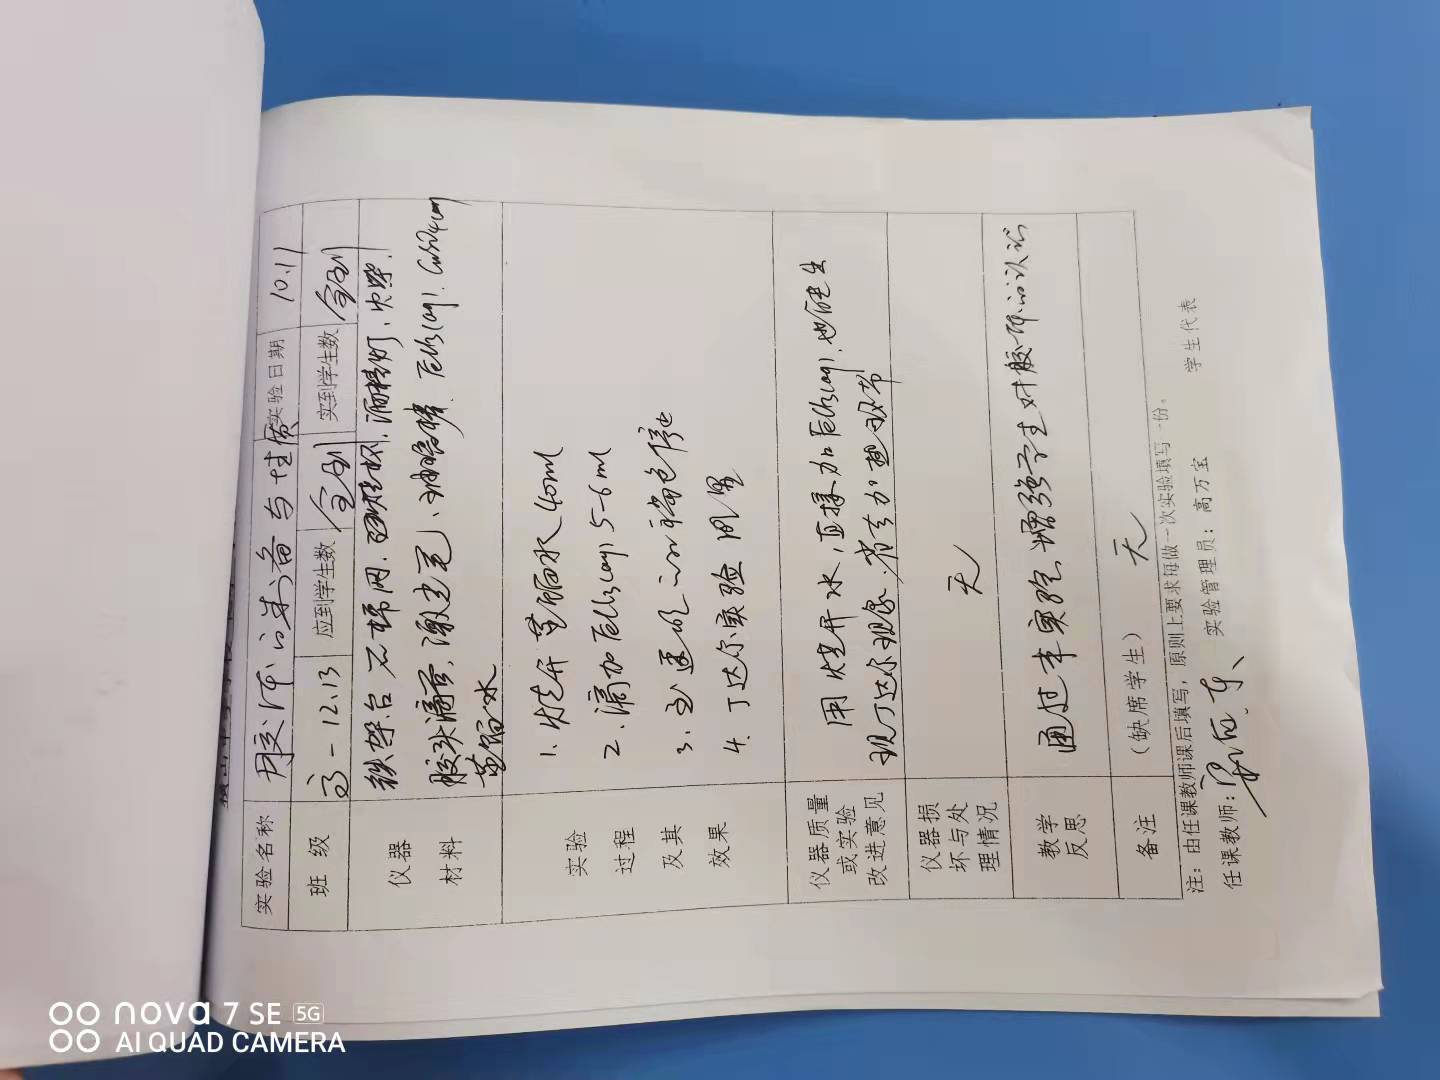 实验名称 胶体的制备与性质 实验日期 10.11
班级 高一12.13 应到学生数 全到 实到学生数 全到
仪器材料 铁架台 石棉网、烧杯、酒精灯、火柴、
胶头滴管、激光笔、 FeCl3(aq)、CuSO4(aq)
蒸馏水
实验过程及其效果
1、烧开蒸馏水40ml
2、滴加FeCl3(aq) 5-6ml
3、至 红褐色停止
4、丁达尔实验
仪器质量或实验改进意见 用烧开水,直接加FeCl3(aq),也能出
现丁达尔现象,省去加热环节
仪器损坏与处理情况 无
教学反思 通过本实验,增强学生对胶体的认识
备注 (缺席学生) 无
注:由任课教师课后填写,原则上要求每做一次实验填写一份。
任课教师: 实验管理员:高万宝 学生代表
nova 7 SE 5G
AI QUAD CAMERA